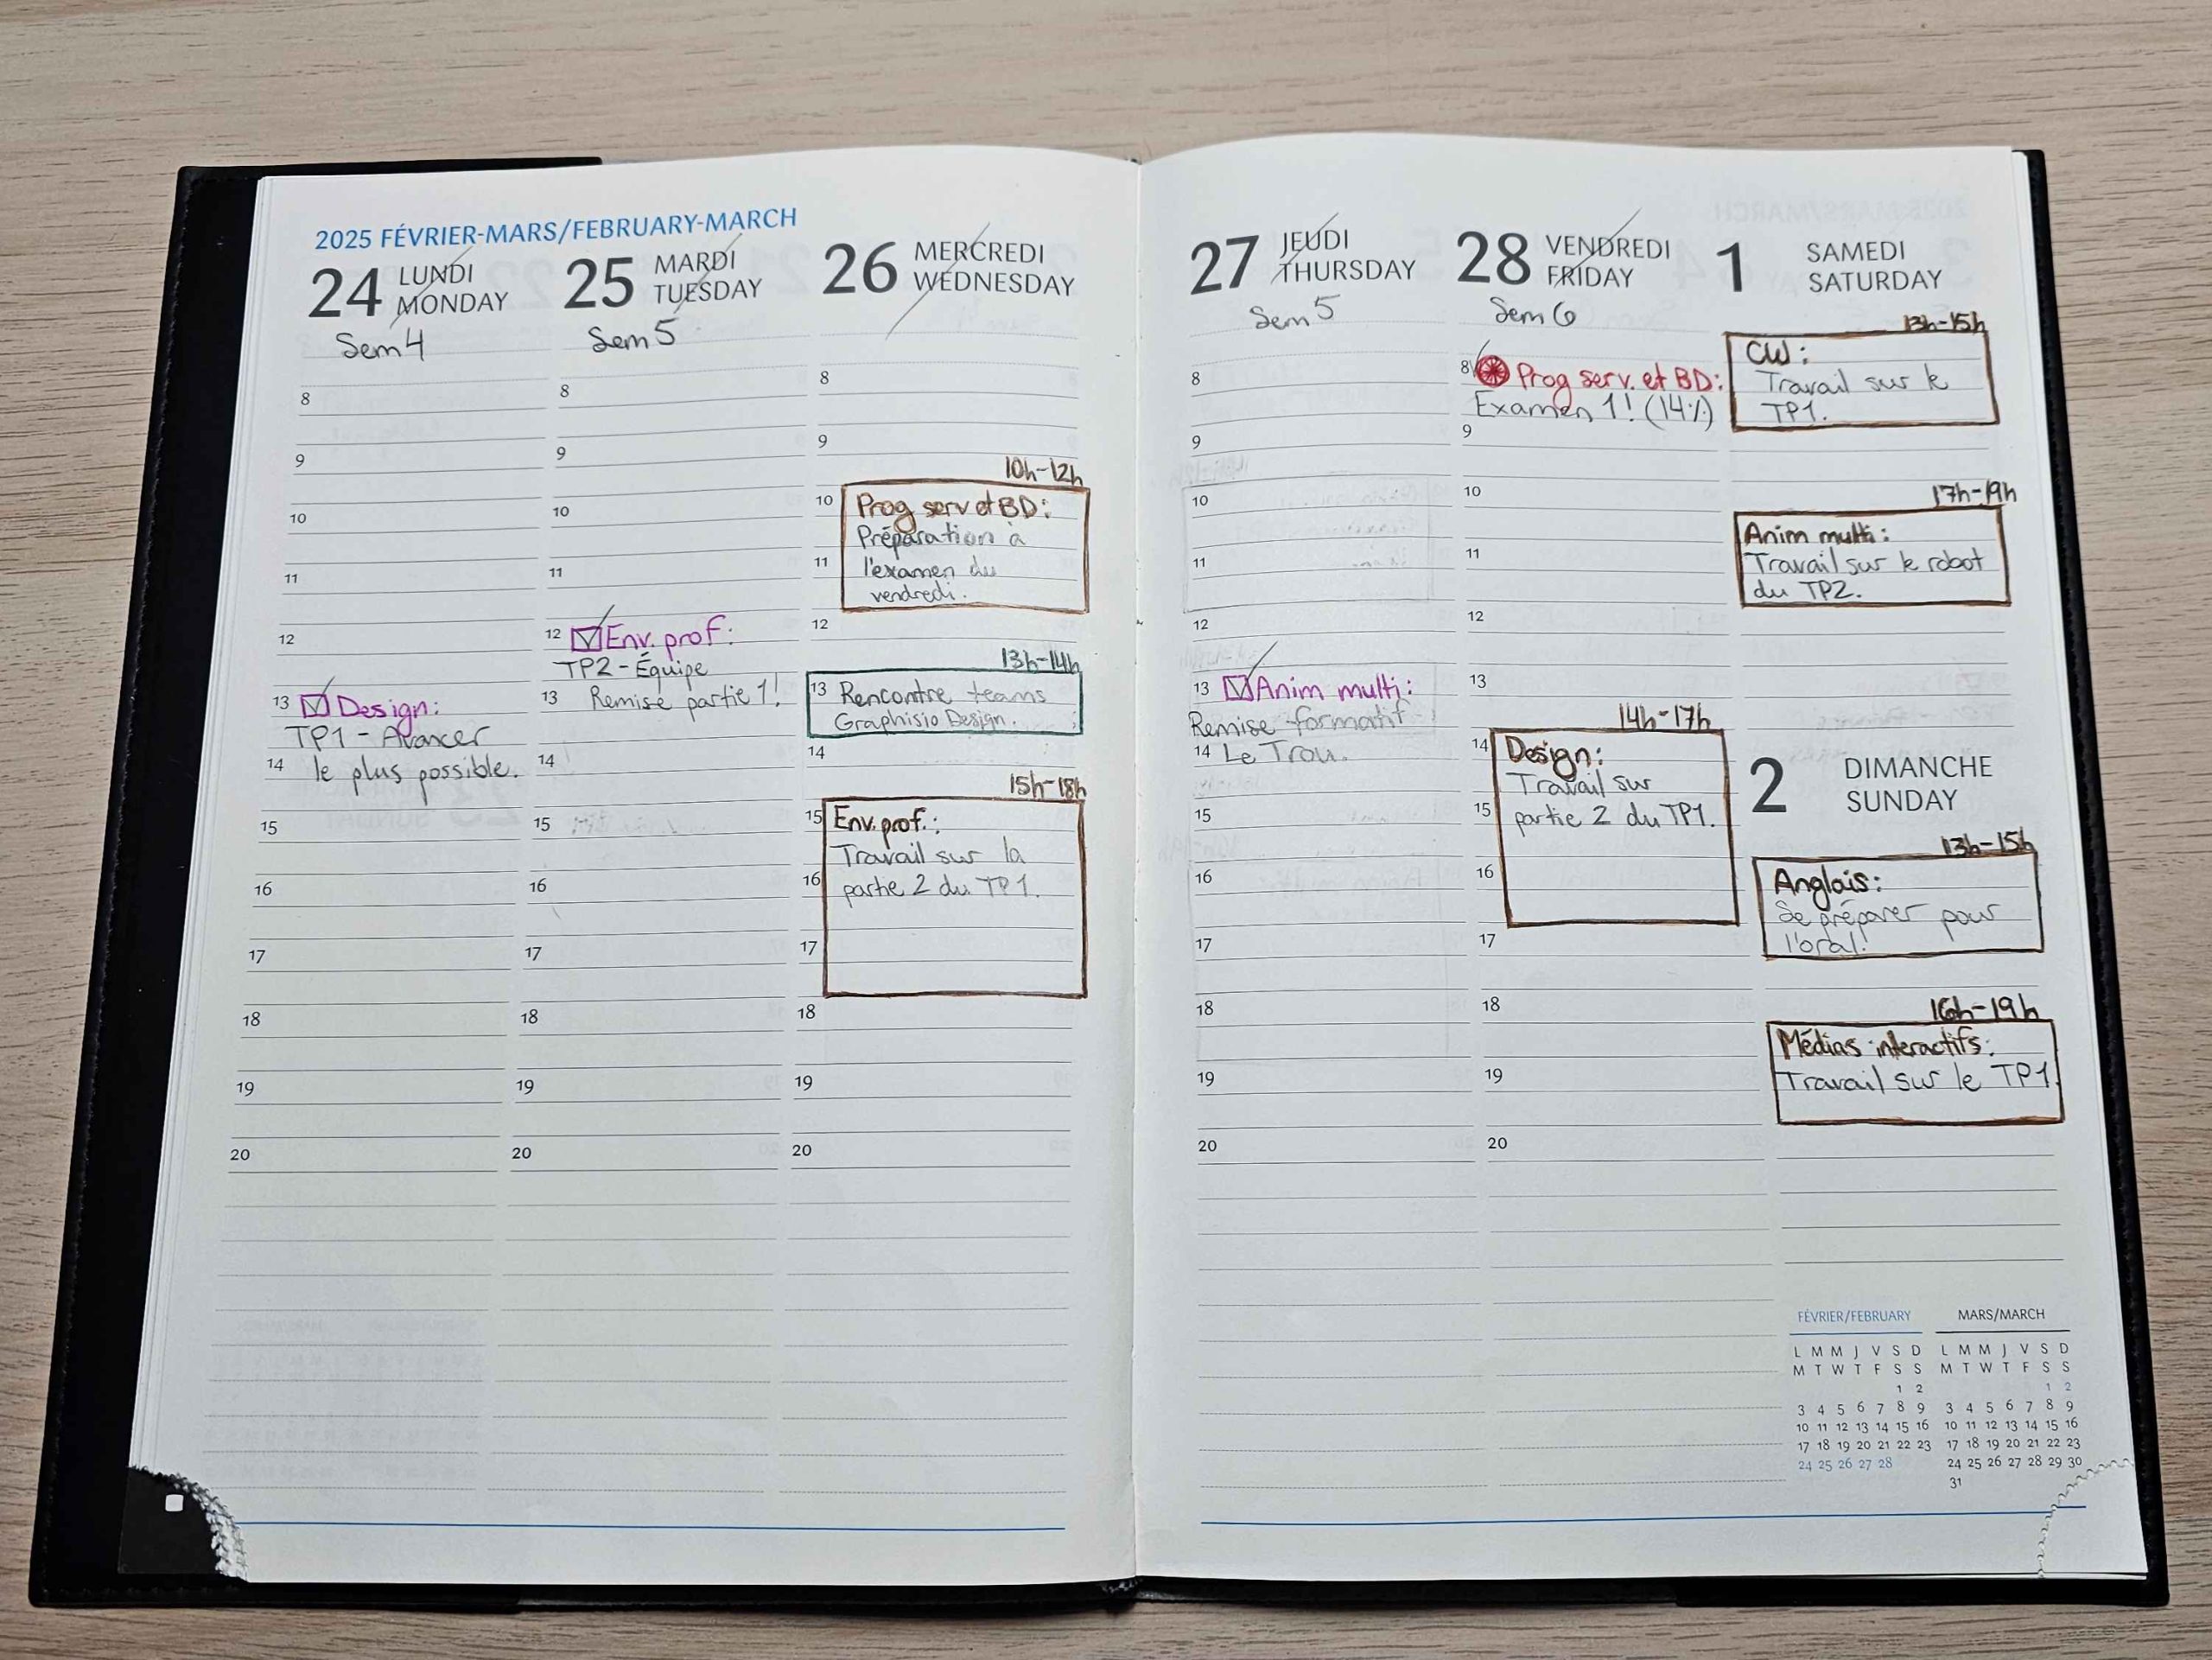 2025 FÉVRIER-MARS/FEBRUARY-MARCH
24 LUNDI
MONDAY
Sem 4
8
9
10
11
12
13 Design:
TP1 - Avancer
14 le plus possible.
15
16
17
18
19
20
25 MARDI
TUESDAY
Sem 5
8
9
10
11
12 Env. prof:
TP2 - Équipe
13 Remise partie 1!
14
15
16
17
18
19
20
26 MERCREDI
WEDNESDAY
8
9
10h-12h
10 Prog serv et BD:
Préparation à
11 l'examen du
vendredi.
12
13h-14h
13 Rencontre teams
Graphisio Design.
14
15h-18h
15 Env. prof.:
Travail sur la
16 partie 2 du TP1.
17
18
19
20
27 JEUDI
THURSDAY
Sem 5
8
9
10
11
12
13 Anim multi:
Remise formatif
14 Le Trou.
15
16
17
18
19
20
28 VENDREDI
FRIDAY
Sem 6
8 Prog serv. et BD:
Examen 1! (14%)
9
10
11
12
13
14h-17h
14 Design:
Travail sur
15 partie 2 du TP1.
16
17
18
19
20
1 SAMEDI
SATURDAY
13h-15h
CW:
Travail sur le
TP1.
17h-19h
Anim multi:
Travail sur le robot
du TP2.
2 DIMANCHE
SUNDAY
13h-15h
Anglais:
Se préparer pour
l'oral!
16h-19h
Médias interactifs:
Travail sur le TP1.
FÉVRIER/FEBRUARY
L M M J V S D
M T W T F S S
1 2
3 4 5 6 7 8 9
10 11 12 13 14 15 16
17 18 19 20 21 22 23
24 25 26 27 28
MARS/MARCH
L M M J V S D
M T W T F S S
1 2
3 4 5 6 7 8 9
10 11 12 13 14 15 16
17 18 19 20 21 22 23
24 25 26 27 28 29 30
31